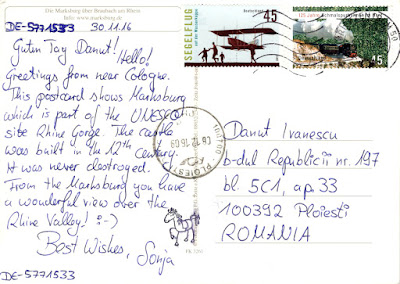 Die Marksburg über Braubach am Rhein
Infos: www.marksburg.de
DE-5771533 30.11.16
Guten Tag Danut!
Hello!
Greetings from near Cologne.
This postcard shows Marksburg
which is part of the UNESCO
site Rhine Gorge. The castle
was built in the 12th century.
It was never destroyed.
From the Marksburg you have
a wonderful view over the
Rhine Valley! :-)
Best Wishes, Sonja
DE-5771533
SEGELFLUG
Deutschland
45
45
PLOIESTI
Danut Ivanescu
b-dul Republicii nr. 197
bl. 5C1, ap. 33
100392 Ploiesti
ROMANIA